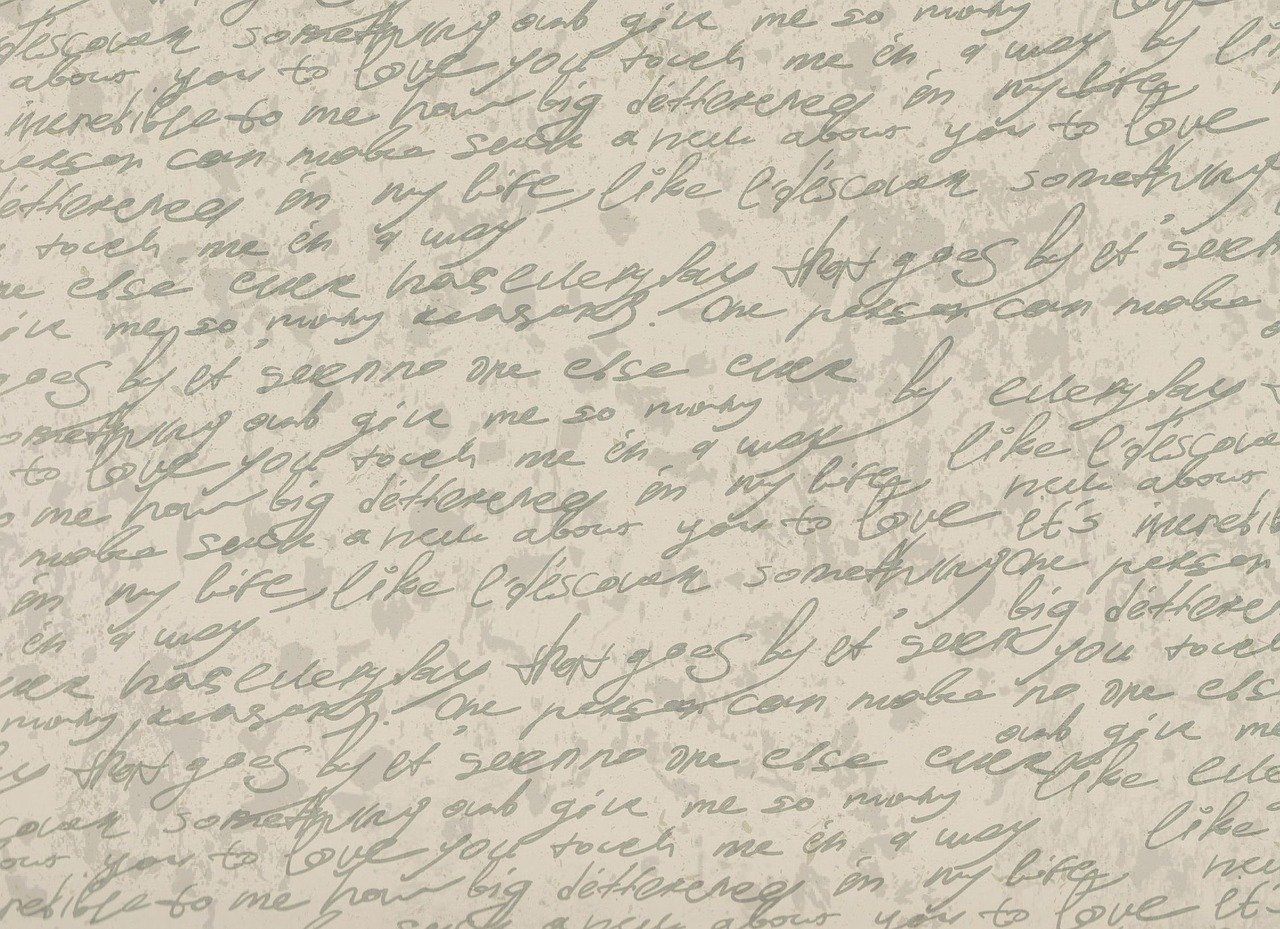 discover something and give me so many love
about you to love you touch me in a way by li
incredible to me how big difference in my life
person can make such a new about you to love
difference in my life, like I discover something
touch me in a way
me else ever has everyday that goes by it seem
give me so many reasons. One person can make
goes by it seem no one else ever by everyday
something and give me so many
to love you touch me in a way like I discove
me how big difference in my life new about
make such a new about you to love it's incredib
in my life, like I discover something One person
big differe
in a way
that goes by it seem you touch
ever has everyday
many reasons. One person can make no one els
and give me
that goes by it seem no one else ever like eve
cover something and give me so many
like
you to love you touch me in a way
new
redible to me how big difference in my life
such a new about you to love it's